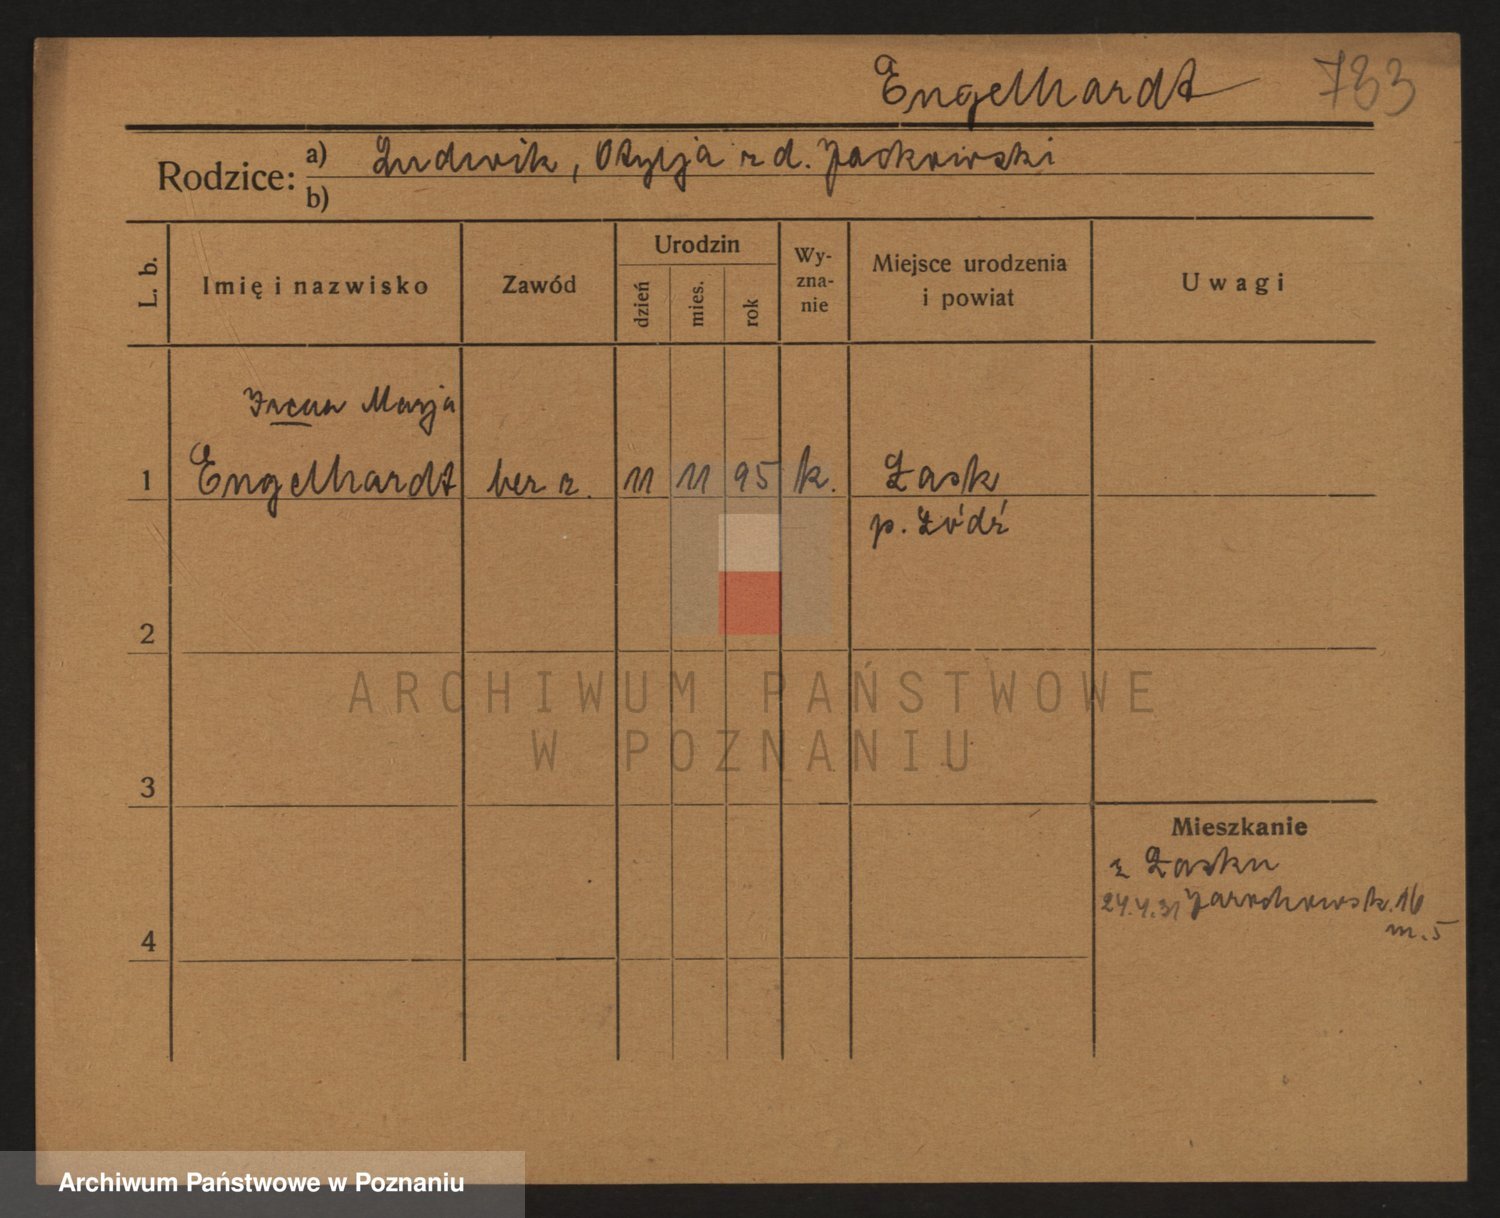 Engelhardt 733
Rodzice: a) Ludwik, Otylja z d. Jaskowski
b)
L. b. Imię i nazwisko Zawód Urodzin dzień mies. rok Wy-zna-nie Miejsce urodzenia i powiat Uwagi
Irena Marja
1 Engelhardt bez z. 11 11 95 k. Łask
p. Łódź
2
ARCHIWUM PAŃSTWOWE
W POZNANIU
3
Mieszkanie
z Łasku
24.4.31 Jarochowsk. 16
m. 5
4
Archiwum Państwowe w Poznaniu